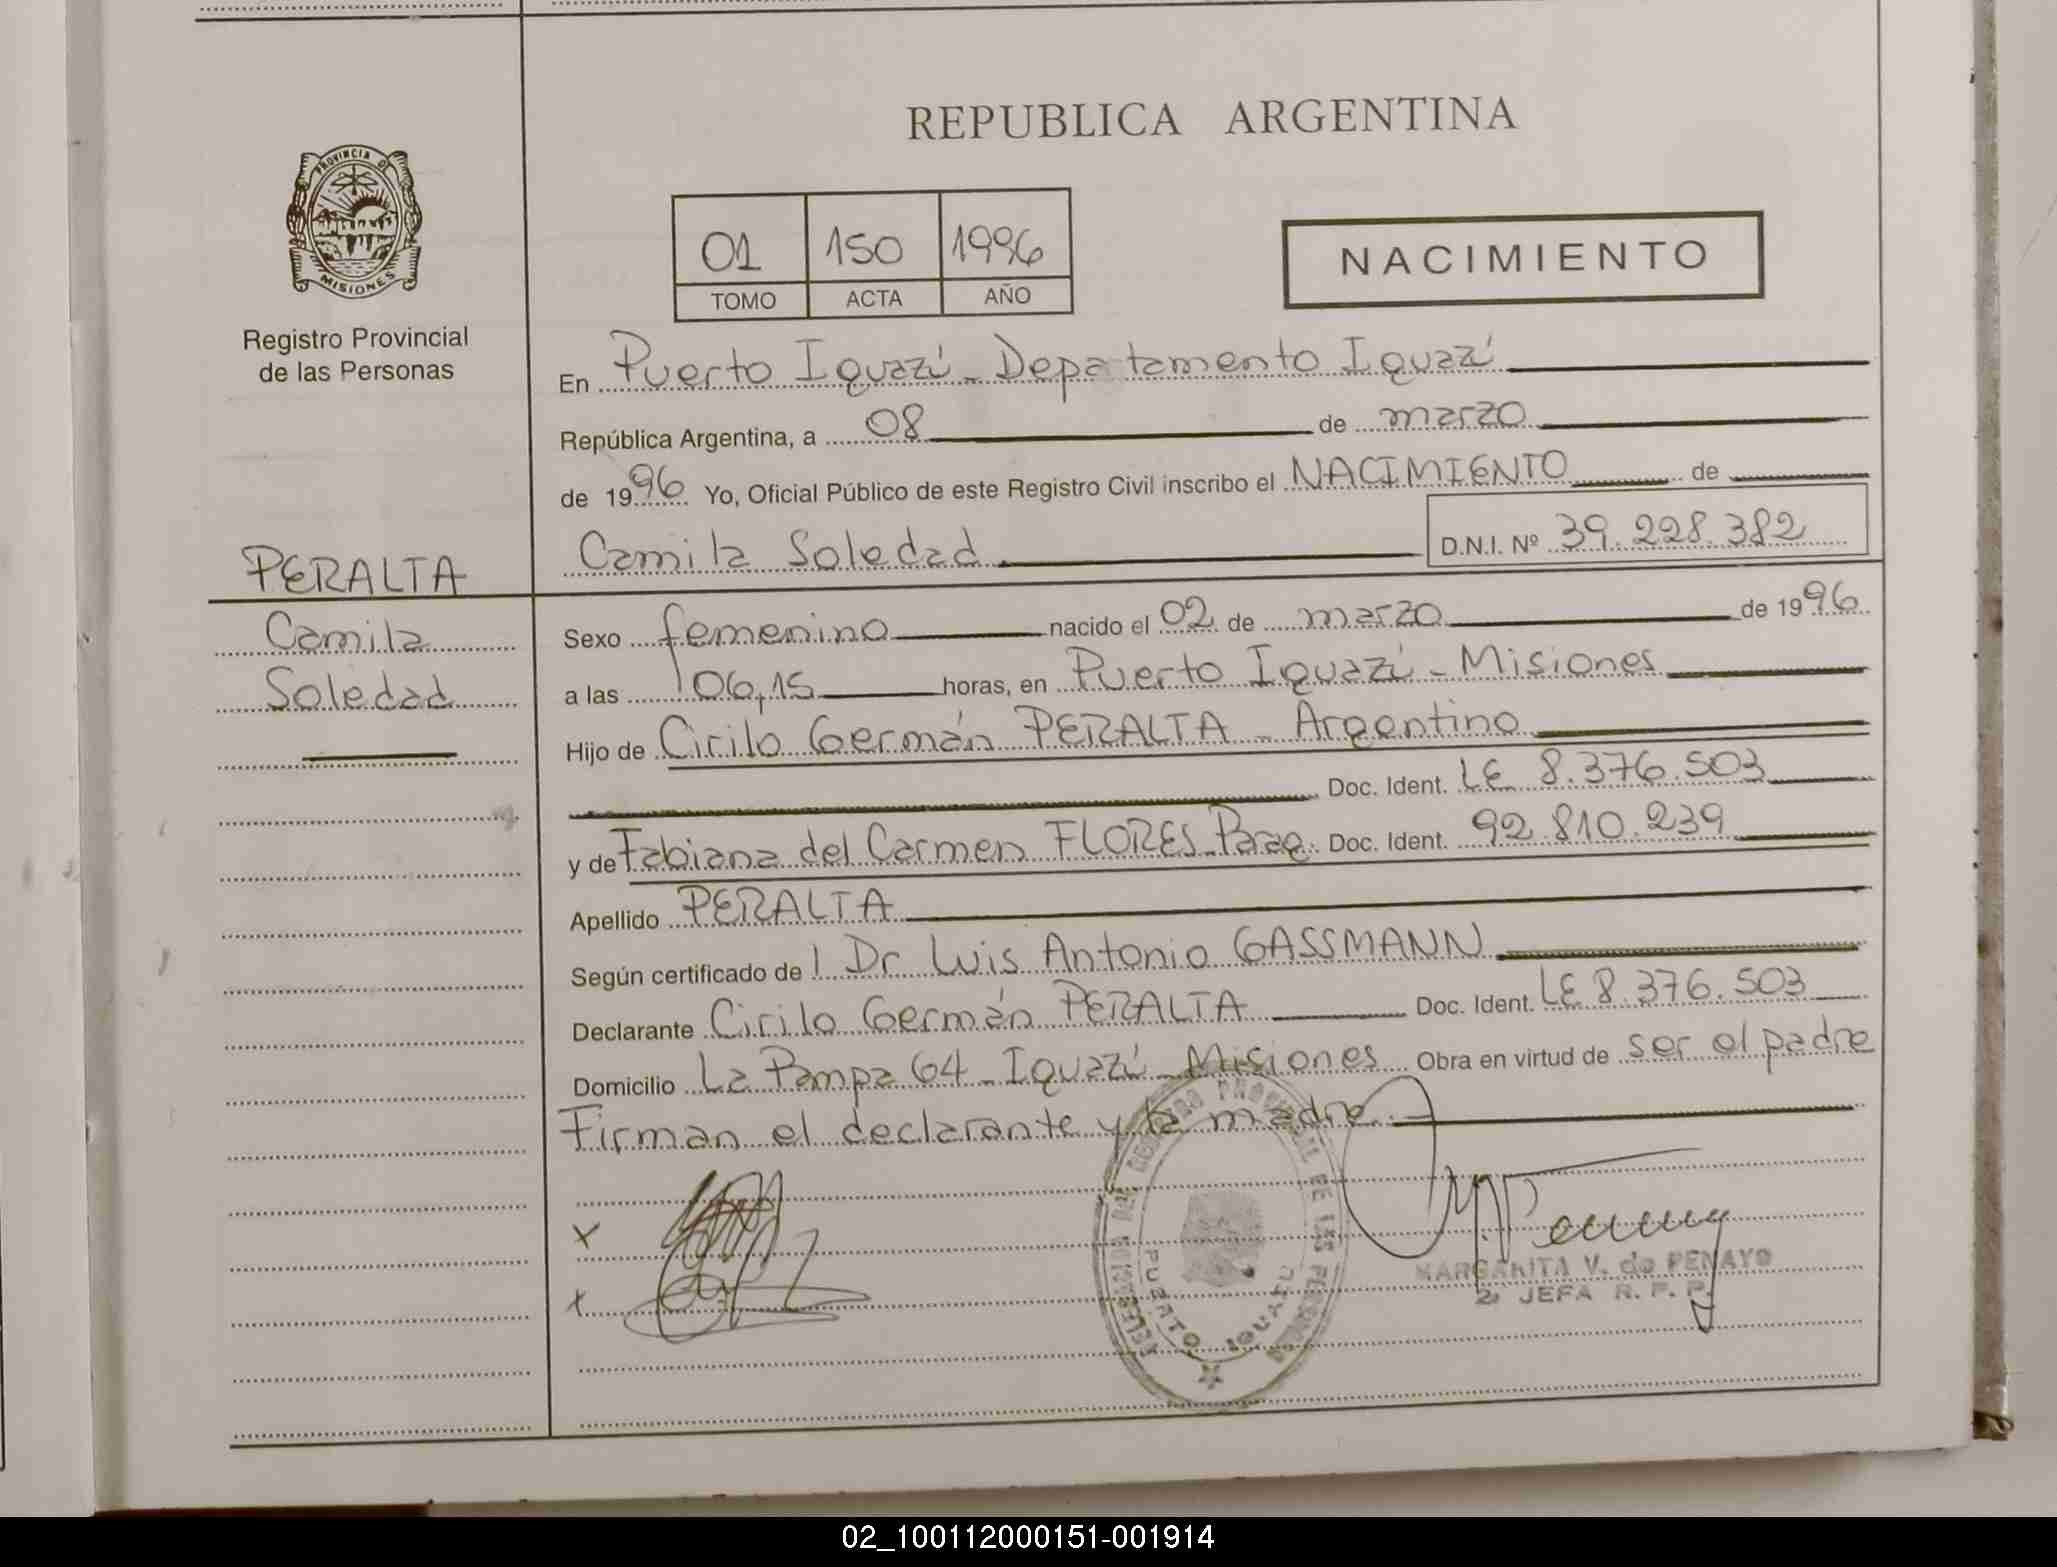 REPUBLICA ARGENTINA
PROVINCIA D
MISIONES
Registro Provincial
de las Personas
01 150 1996
TOMO ACTA AÑO
NACIMIENTO
En Puerto Iguazú - Departamento Iguazú
República Argentina, a 08 de marzo
de 1996 Yo, Oficial Público de este Registro Civil inscribo el NACIMIENTO de
Camila Soledad D.N.I. Nº 39.228.382
PERALTA
Camila
Soledad
Sexo femenino nacido el 02 de marzo de 1996
a las 06,15 horas, en Puerto Iguazú - Misiones
Hijo de Cirilo Germán PERALTA - Argentino
Doc. Ident. LE 8.376.503
y de Fabiana del Carmen FLORES - Parag. Doc. Ident. 92.810.239
Apellido PERALTA
Según certificado de l Dr Luis Antonio GASSMANN
Declarante Cirilo Germán PERALTA Doc. Ident. LE 8.376.503
Domicilio La Pampa 64 - Iguazú - Misiones Obra en virtud de ser el padre
Firman el declarante y la madre. -
x
x
DELEGACION DEL REGISTRO PROVINCIAL DE LAS PERSONAS
PUERTO IGUAZU
MARGARITA V. de PENAYO
2ª JEFA R. P. P.
02_100112000151-001914